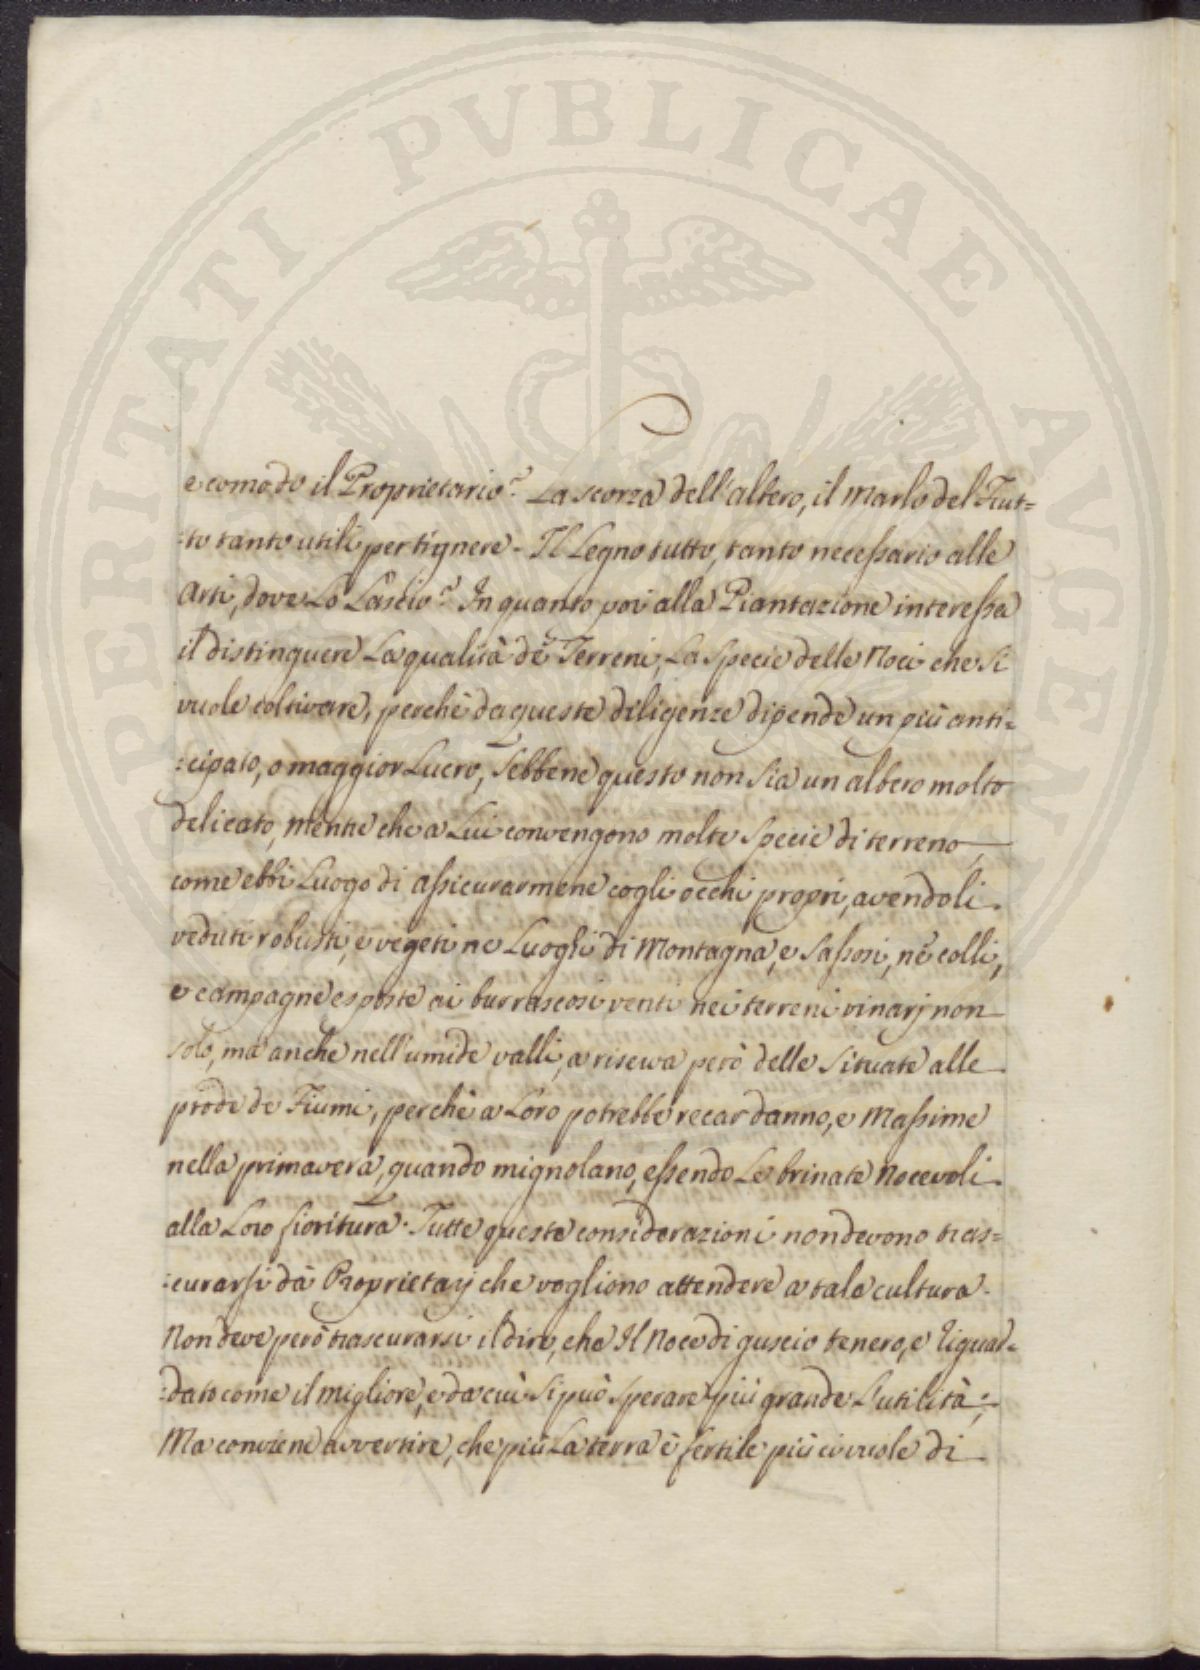 PROSPERITATI PVBLICAE AVGENDAE
e comodo il Proprietario? La scorza dell'albero, il Marlo del Frut=
=to tanto utili per tignere. Il Legno tutto, tanto necessario alle
Arti, dove Lo Lascio? In quanto poi alla Piantazione interessa
il distinguere La qualità de Terreni, La Specie delle Noci che Si
vuole coltivare, perchè da queste diligenze dipende un più anti=
=cipato, o maggior Lucro, Sebbene questo non Sia un albero molto
delicato, mentre che a Lui convengono molte Specie di terreno,
come ebbi Luogo di assicurarmene cogli occhi propri, avendoli
veduti robusti, e vegeti ne Luoghi di Montagna, e Sassosi, ne colli,
e campagne esposte ai burrascosi venti nei terreni vinarj non
solo, ma anche nell'umide valli, a riserva però delle Situate alle
prode de Fiumi, perchè a Loro potrebbe recar danno, e Massime
nella primavera, quando mignolano, essendo Le brinate Nocevoli
alla Loro fioritura. Tutte queste considerazioni non devono tras=
=curarsi dà Proprietarj che vogliono attendere a tale cultura.
Non deve però trascurarsi il dire, che Il Noce di guscio tenero, e riguar=
=dato come il migliore, e da cui Si può sperare più grande L'utilità;
Ma conviene avvertire, che più La terra è fertile più ci vuole di